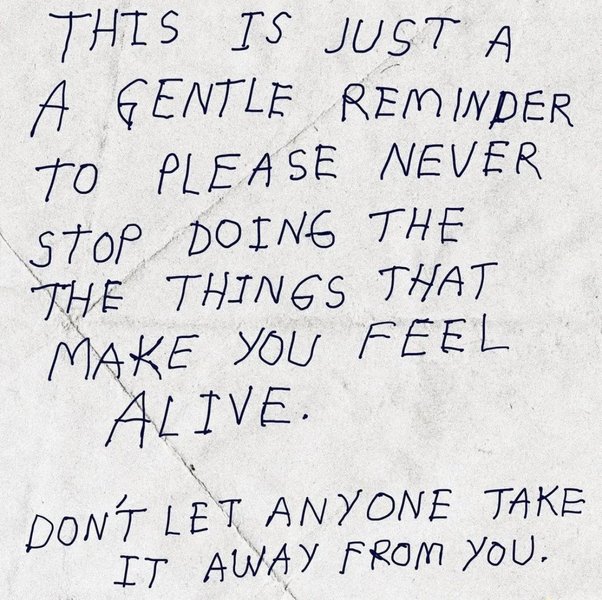 THIS IS JUST A
A GENTLE REMINDER
TO PLEASE NEVER
STOP DOING THE
THE THINGS THAT
MAKE YOU FEEL
ALIVE.
DON'T LET ANYONE TAKE
IT AWAY FROM YOU.